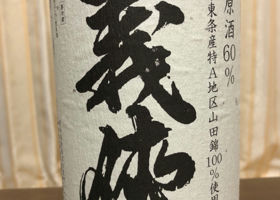 原酒60%
東条産特A地区山田錦100%使用
義侠